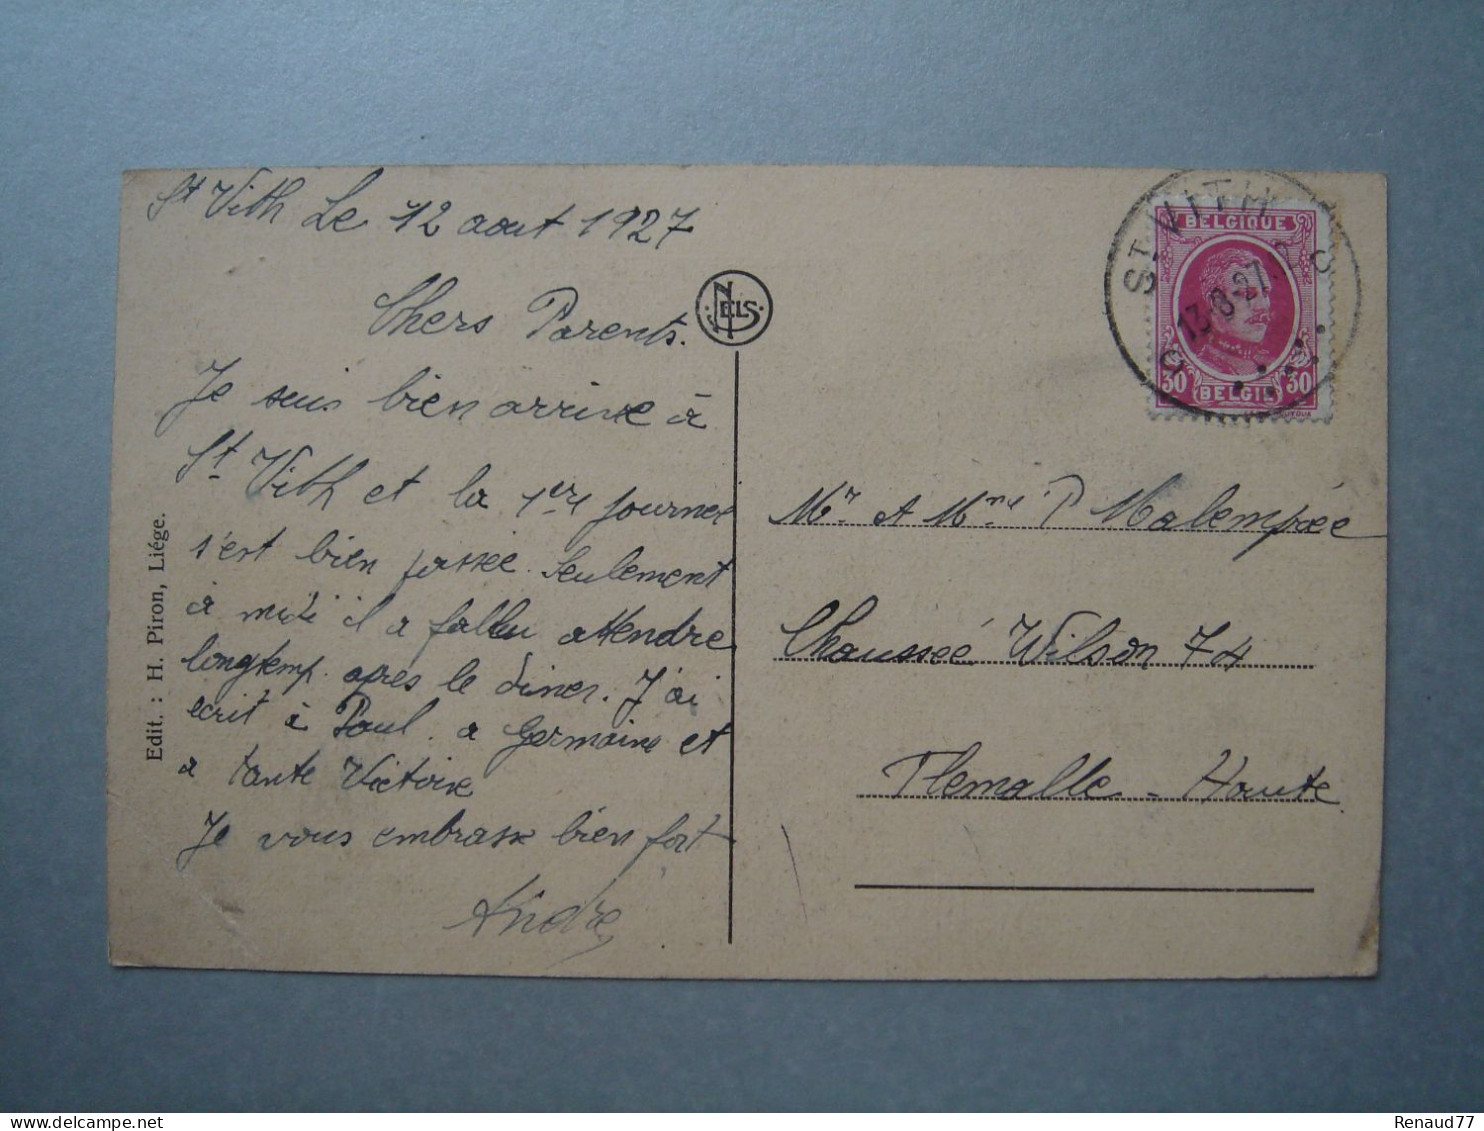 St Vith Le 12 aout 1927
Chers Parents.
Je suis bien arrivé à
St Vith et la 1ère journeé
s'est bien passée. Seulement
à midi il a fallu attendre
longtemp. après le diner. J'ai
ecrit à Paul. a Germaine et
a tante Victoire
Je vous embrasse bien fort
André
Edit. : H. Piron, Liége.
NELS
ST VITH
13-8-27
BELGIQUE
30 30
BELGIE
Mr. et Mme P Malemprée
Chausseé Wilson 74
Flemalle - Haute
Renaud77